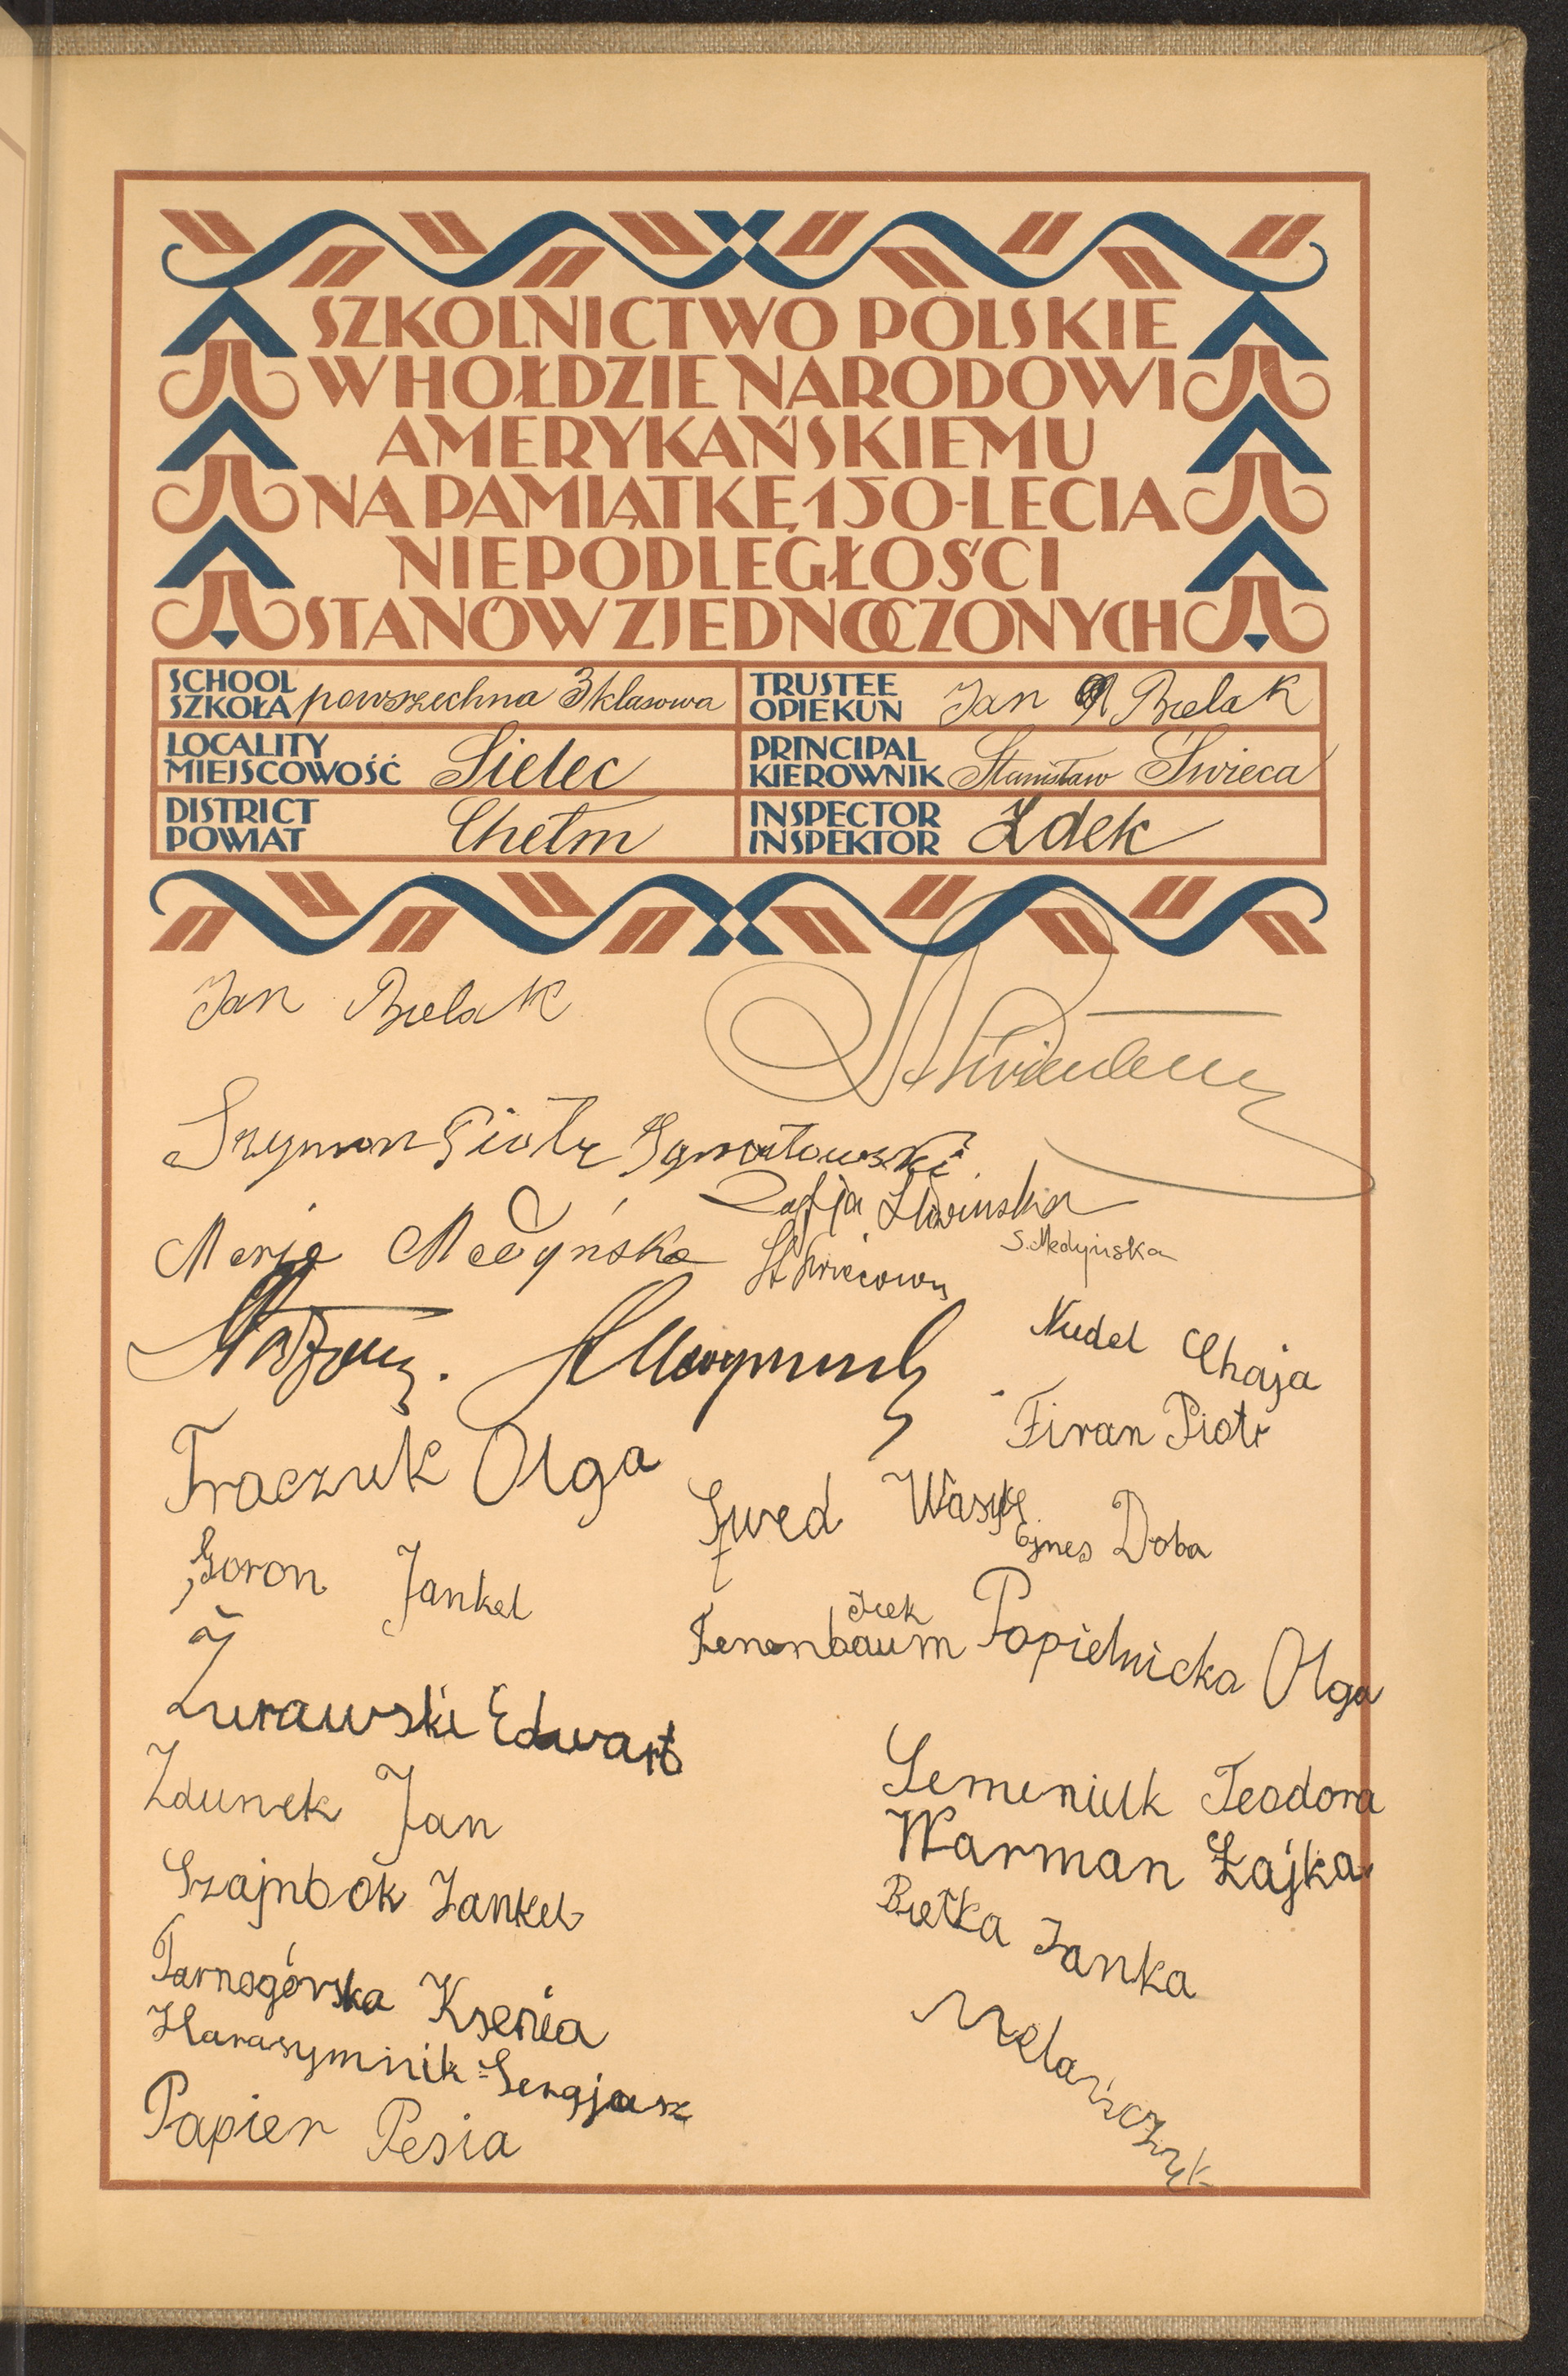 SZKOLNICTWO POLSKIE
W HOŁDZIE NARODOWI
AMERYKAŃSKIEMU
NA PAMIĄTKĘ 150-LECIA
NIEPODLEGŁOŚCI
STANÓW ZJEDNOCZONYCH
SCHOOL
SZKOŁA powszechna 3 klasowa
TRUSTEE
OPIEKUN Jan Bielak
LOCALITY
MIEJSCOWOŚĆ Sielec
PRINCIPAL
KIEROWNIK Stanisław Świeca
DISTRICT
POWIAT Chełm
INSPECTOR
INSPEKTOR Zdek
Jan Bielak
Szymon Piotr
Zofja Śliwińska
Marja Medyńska
S. Medyńska
St Świecowa
Nudel Chaja
Firan Piotr
Traczuk Olga
Szwed Wasyl
Ejnes Doba
Goron Jankel
Icek
Tenenbaum
Popielnicka Olga
Żurawski Edwart
Zdunek Jan
Semeniuk Teodora
Warman Łajka
Szajnbok Jankel
Biełka Janka
Tarnogórska Ksenia
Harasymnik Sergjusz
Melańczuk
Papier Pesia